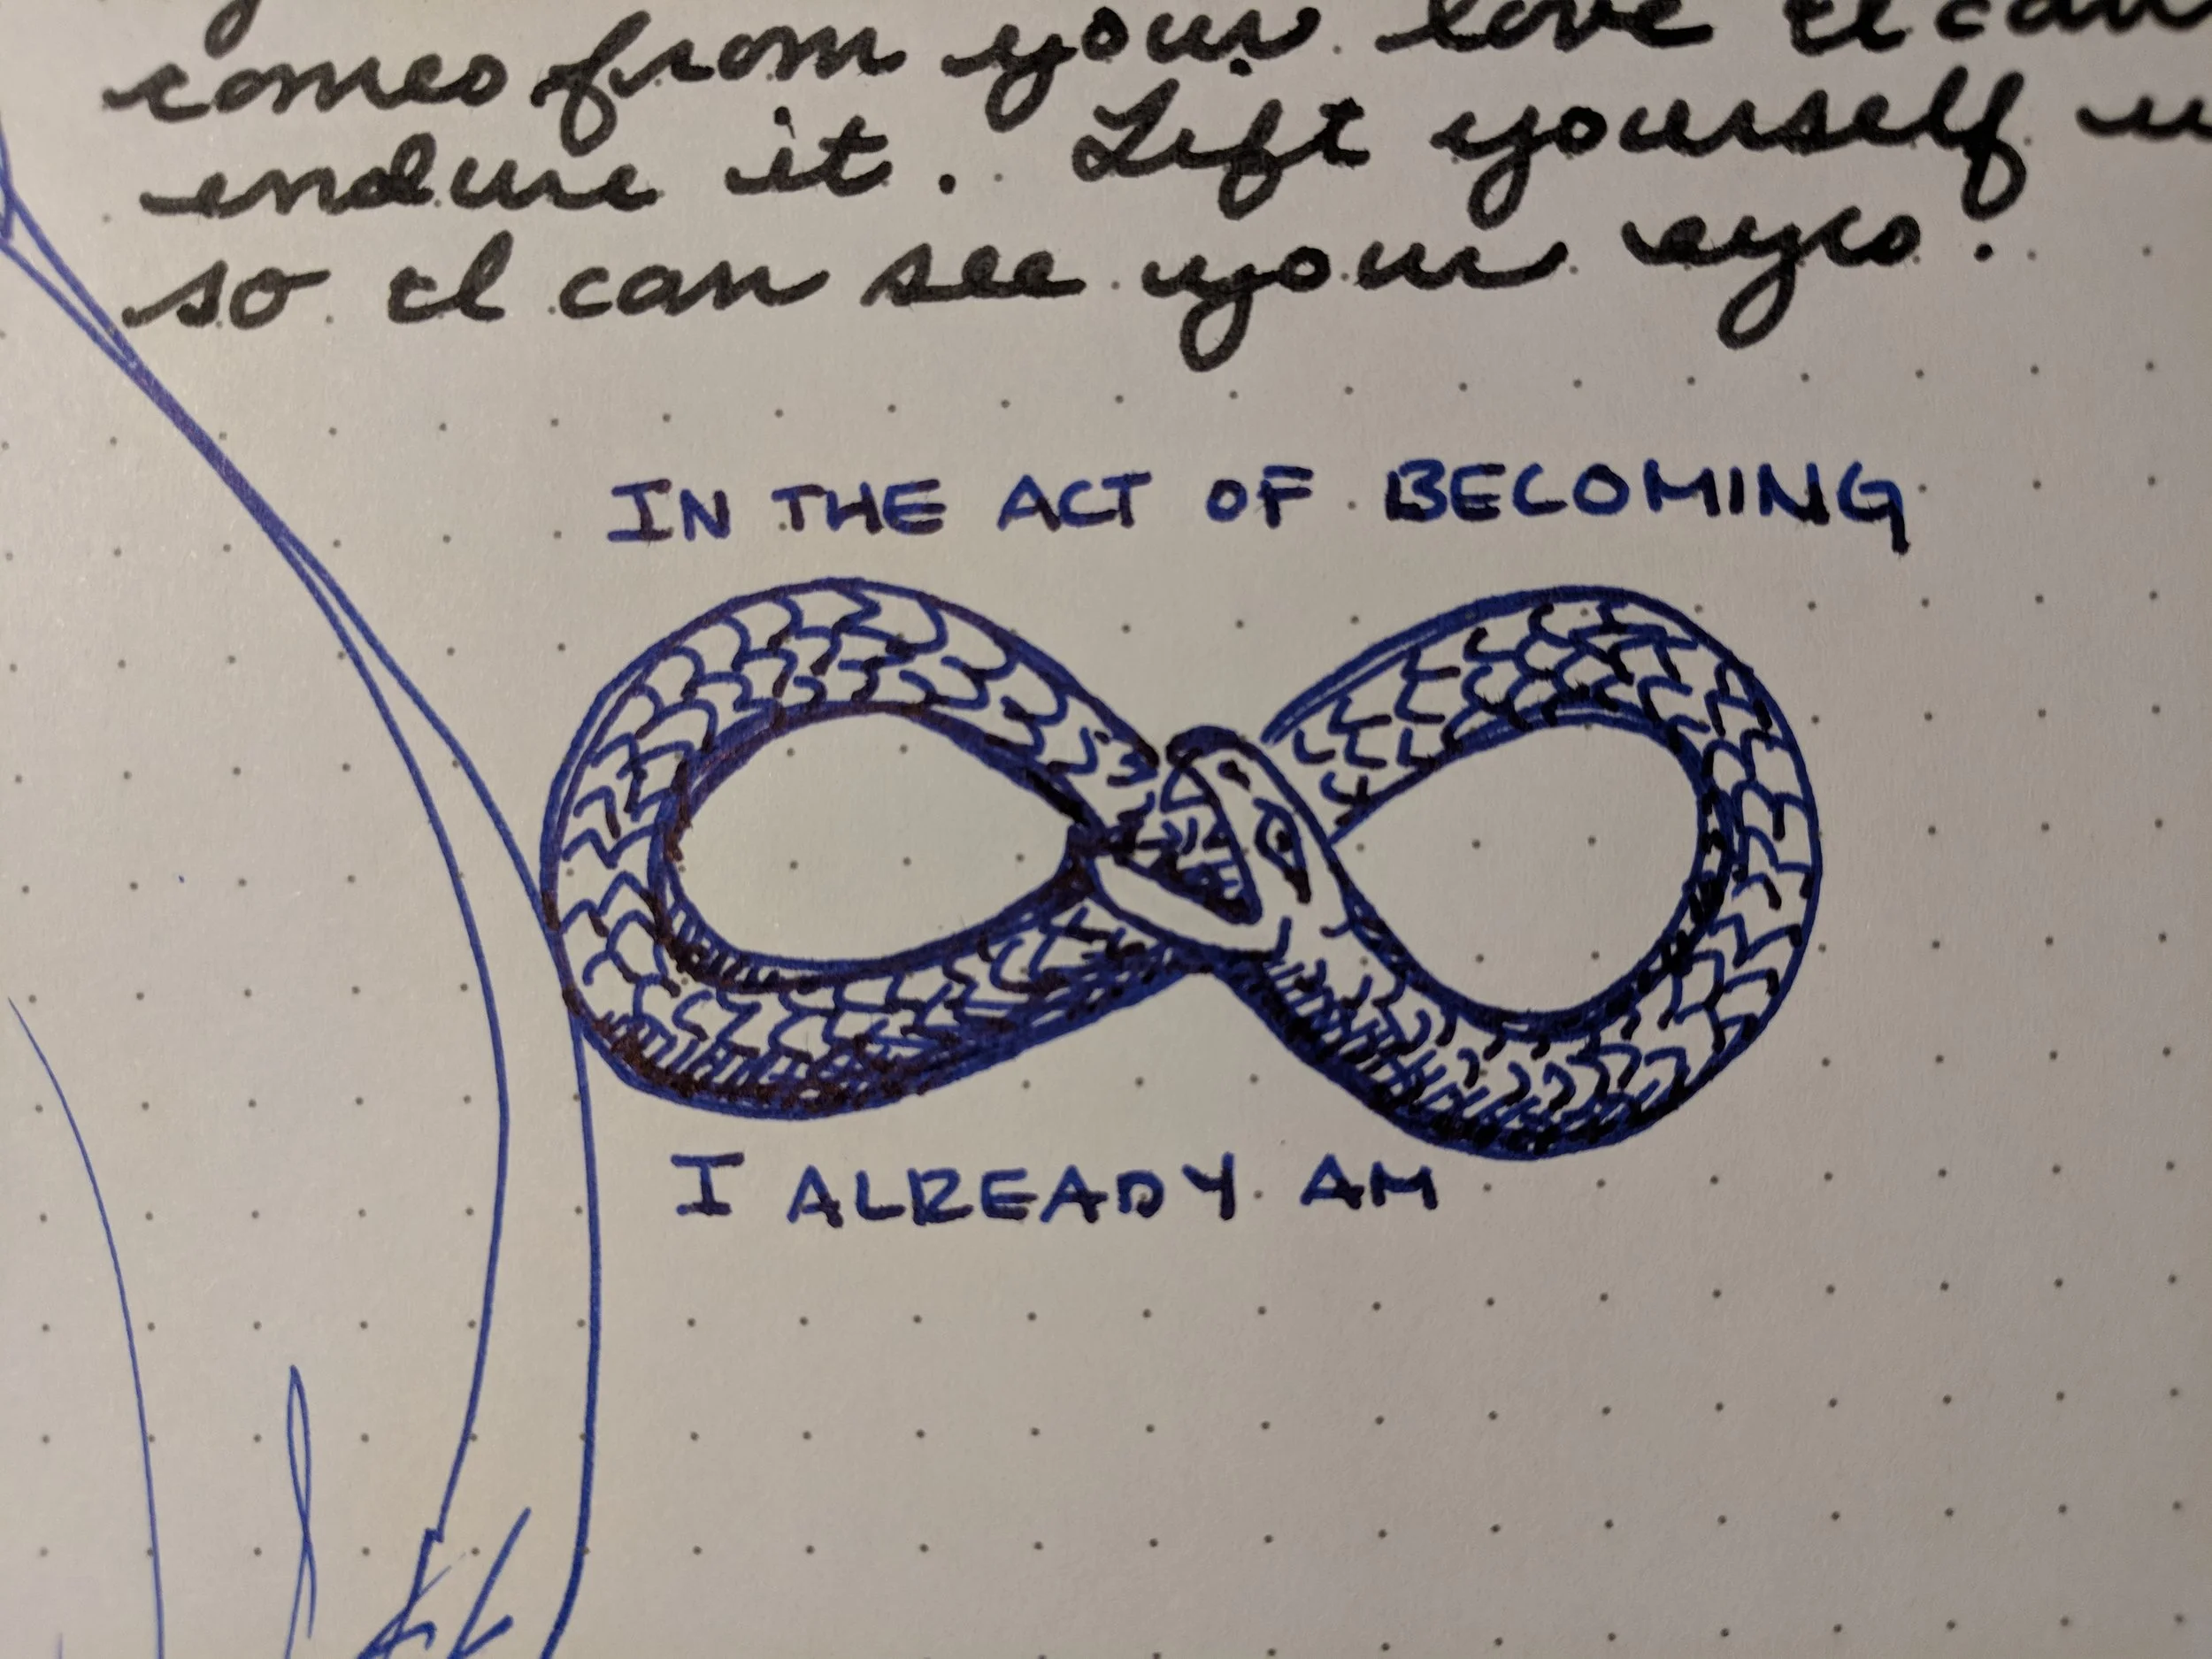 comes from your love I can
endure it. Lift yourself
so I can see your eyes.
IN THE ACT OF BECOMING
I ALREADY AM